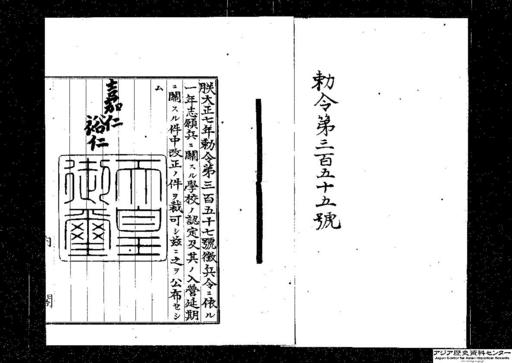 勅令第三百五十五號
朕大正七年勅令第三百五十七號徴兵令ニ依ル
一年志願兵ニ關スル學校ノ認定及其ノ入營延期
ニ關スル件中改正ノ件ヲ裁可シ茲ニ之ヲ公布セシ
ム
嘉仁
裕仁
天皇
御璽
内閣
アジア歴史資料センター
Japan Center for Asian Historical Records